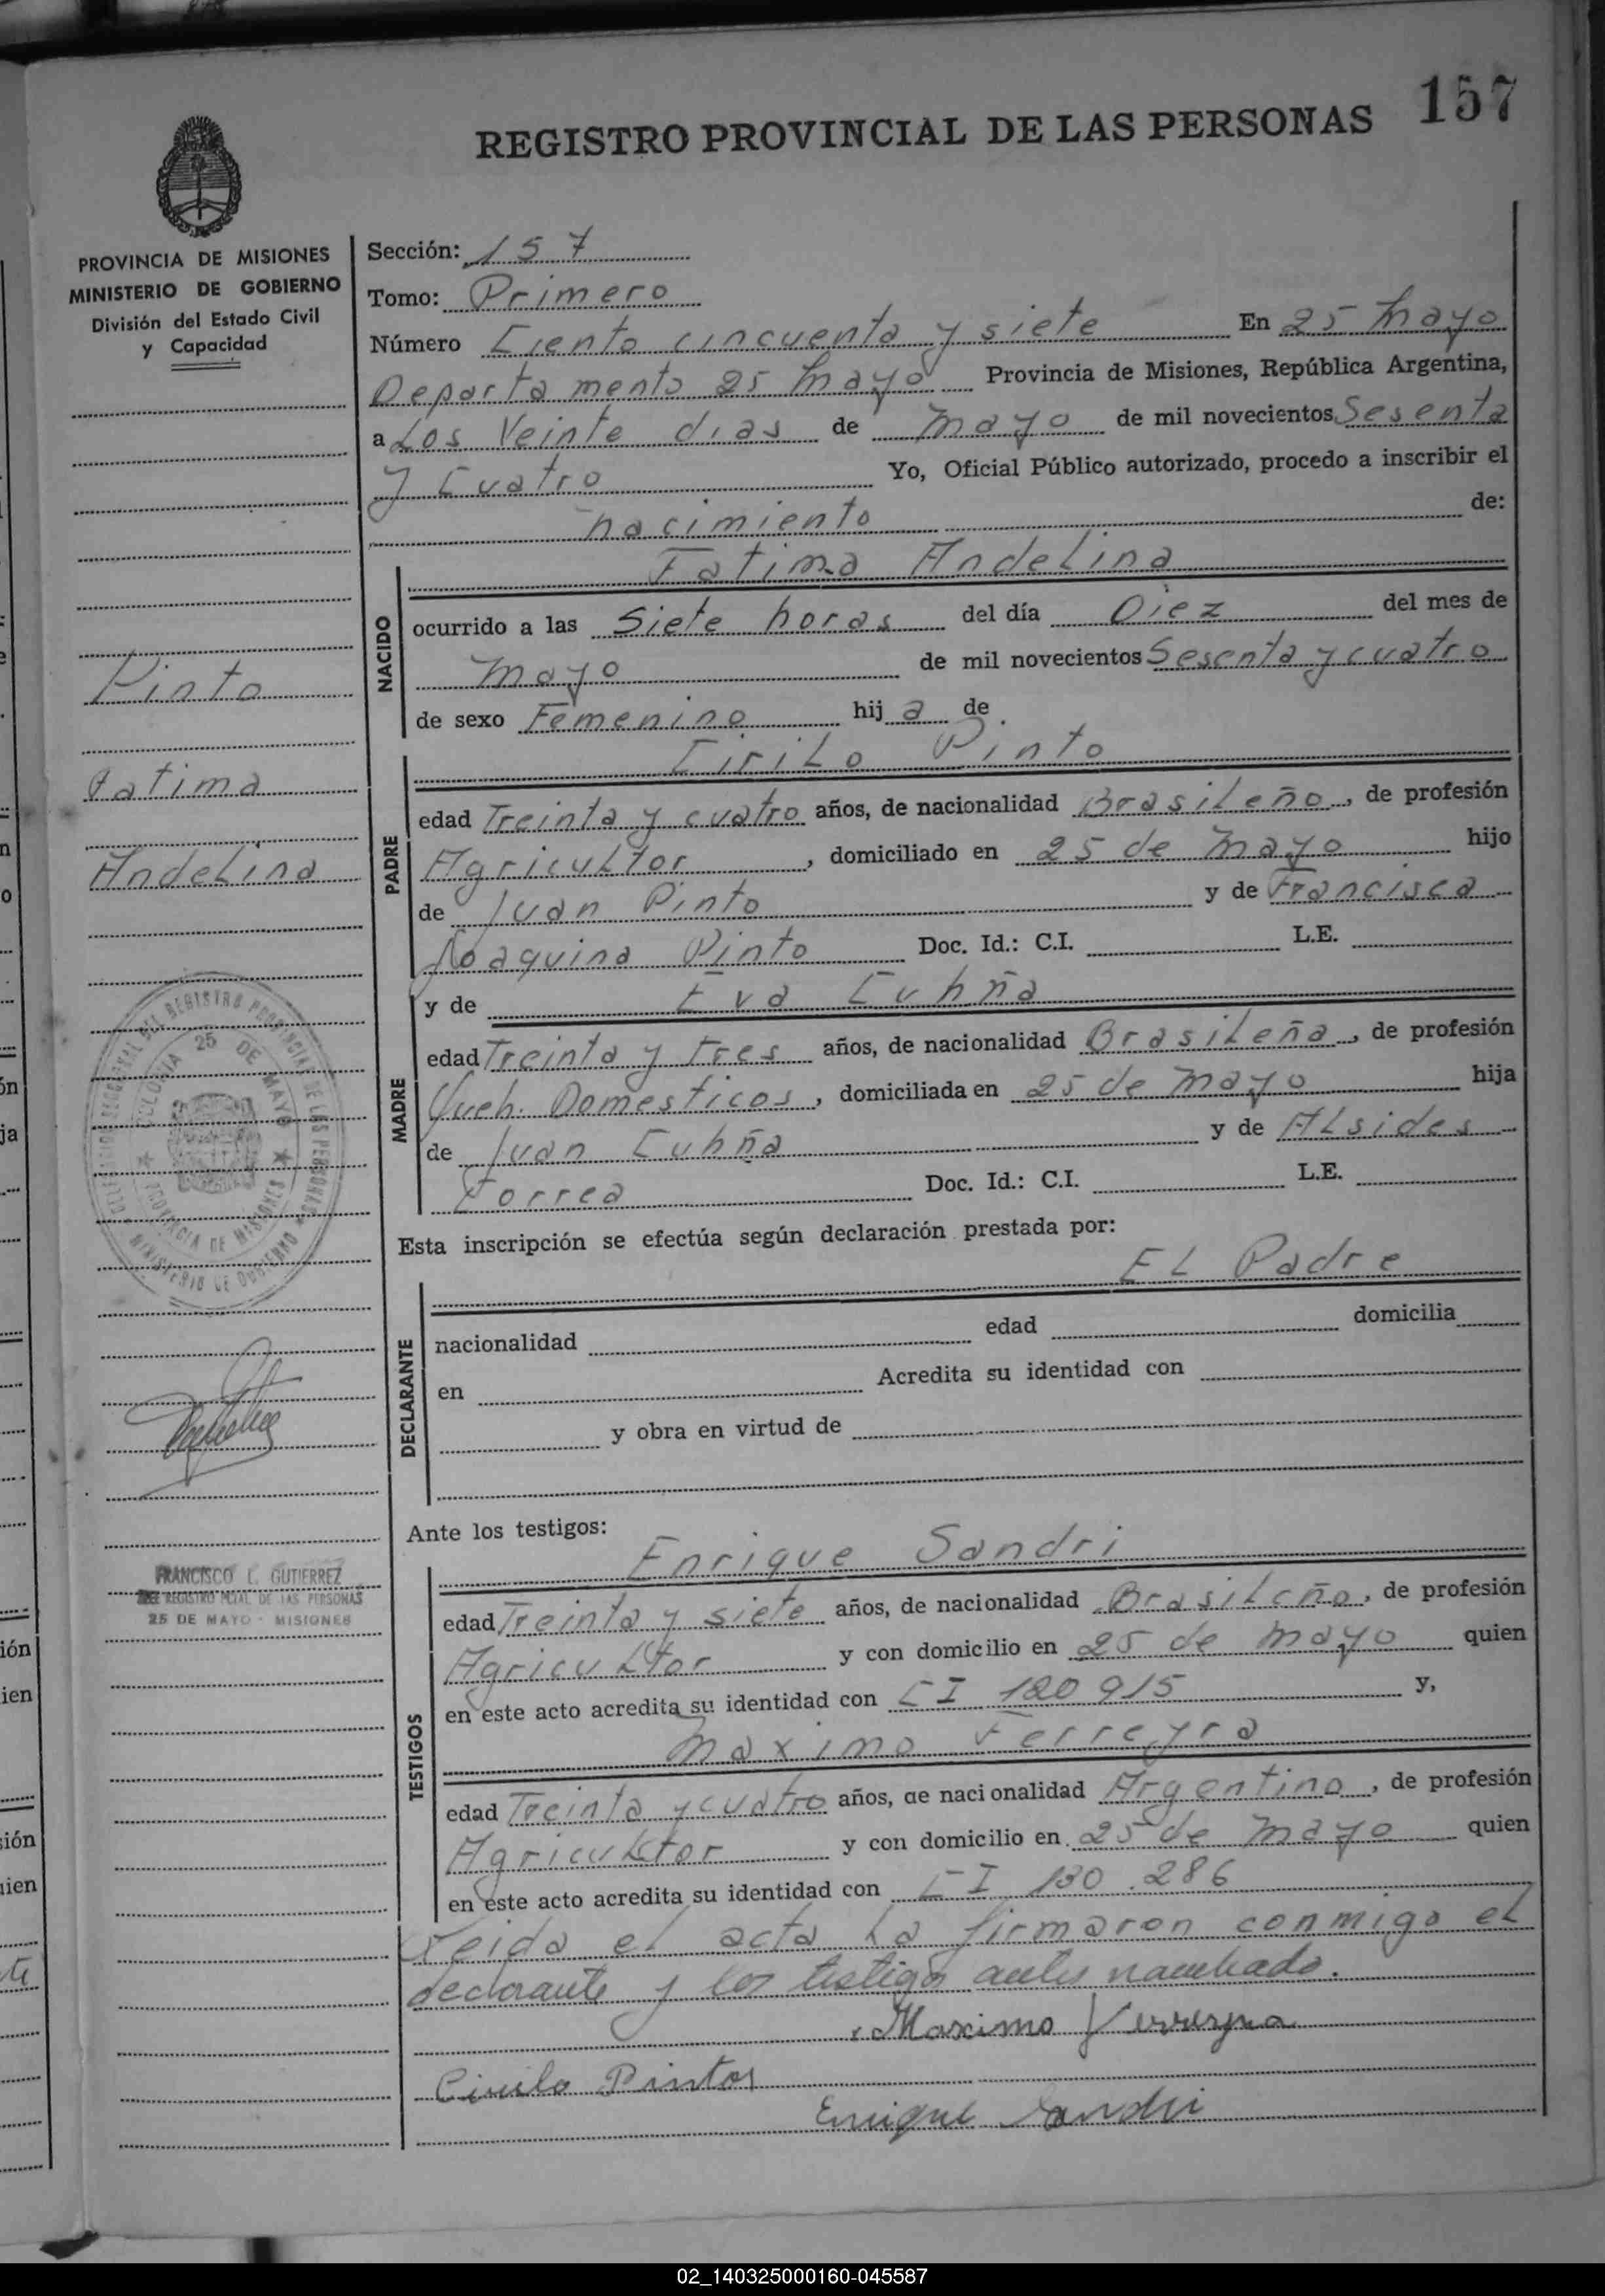 157
REGISTRO PROVINCIAL DE LAS PERSONAS
PROVINCIA DE MISIONES
MINISTERIO DE GOBIERNO
División del Estado Civil
y Capacidad
Pinto
Fatima
Andelina
DELEGACION SECCIONAL DEL REGISTRO PROVINCIAL DE LAS PERSONAS
COLONIA 25 DE MAYO
PROVINCIA DE MISIONES
MINISTERIO DE GOBIERNO
FRANCISCO L. GUTIERREZ
JEFE REGISTRO PCIAL. DE LAS PERSONAS
25 DE MAYO - MISIONES
Sección: 157
Tomo: Primero
Número Ciento cincuenta y siete En 25 Mayo
Departamento 25 Mayo Provincia de Misiones, República Argentina,
a Los Veinte dias de Mayo de mil novecientos Sesenta
y Cuatro Yo, Oficial Público autorizado, procedo a inscribir el
nacimiento de:
Fatima Andelina
NACIDO
ocurrido a las Siete horas del día Diez del mes de
Mayo de mil novecientos Sesenta y cuatro
de sexo Femenino hij a de
Cirilo Pinto
PADRE
edad Treinta y cuatro años, de nacionalidad Brasileño, de profesión
Agricultor, domiciliado en 25 de Mayo hijo
de Juan Pinto y de Francisca
Joaquina Pinto Doc. Id.: C.I. L.E.
y de Eva Cuhña
MADRE
edad Treinta y tres años, de nacionalidad Brasileña, de profesión
Queh. Domesticos, domiciliada en 25 de Mayo hija
de Juan Cuhña y de Alsides
Correa Doc. Id.: C.I. L.E.
Esta inscripción se efectúa según declaración prestada por:
El Padre
DECLARANTE
nacionalidad edad domicilia
en Acredita su identidad con
y obra en virtud de
Ante los testigos:
Enrique Sandri
TESTIGOS
edad Treinta y siete años, de nacionalidad Brasileño, de profesión
Agricultor y con domicilio en 25 de Mayo quien
en este acto acredita su identidad con CI 120915 y,
Maximo Ferreyra
edad Treinta y cuatro años, de nacionalidad Argentino, de profesión
Agricultor y con domicilio en 25 de Mayo quien
en este acto acredita su identidad con CI 130.286
Leida el acta la firmaron conmigo el
declarante y los testigos antes nombrado.
Maximo Ferreyra
Cirilo Pintos
Enrique Sandri
02_140325000160-045587